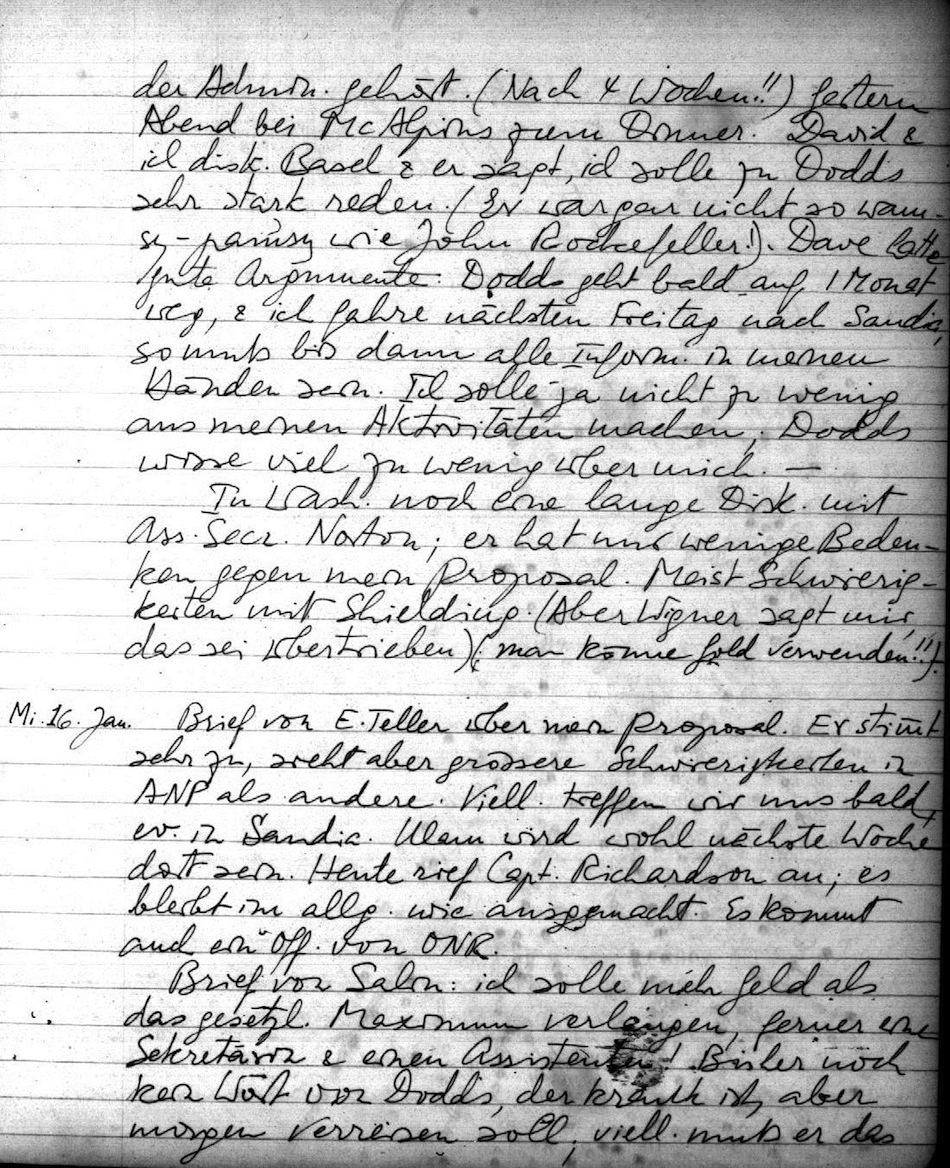 der Admin. gehört. (Nach 4 Wochen!!) Gestern
Abend bei McAlpins zum Dinner. David &
ich disk. Basel & er sagt, ich solle zu Dodds
sehr stark reden. (Er war gar nicht so wam-
sy-pamsy wie John Rockefeller!). Dave hatte
gute Argumente. Dodds geht bald auf 1 Monat
weg, & ich fahre nächsten Freitag nach Sandia,
so muß bis dann alle Inform. in meinen
Händen sein. Ich solle ja nicht zu wenig
aus meinen Aktivitäten machen, Dodds
wisse viel zu wenig über mich. —
In Wash. noch eine lange Disk. mit
Ass. Secr. Norton; er hat nur wenige Beden-
ken gegen mein Proposal. Meist Schwierig-
keiten mit Shielding. (Aber Wigner sagt mir,
das sei übertrieben) (: man könne Gold verwenden!!).
Mi. 16. Jan. Brief von E. Teller über mein Proposal. Er stim̄t
sehr zu, sieht aber grössere Schwierigkeiten in
ANP als andere. Viell. treffen wir uns bald,
ev. in Sandia. Ulam wird wohl nächste Woche
dort sein. Heute rief Capt. Richardson an; es
bleibt im allg. wie ausgemacht. Es kommt
auch ein Off. von ONR.
Brief von Salin: ich solle mehr Geld als
das gesetzl. Maximum verlangen, ferner eine
Sekretärin & einen Assistenten! Bisher noch
kein Wort von Dodds, der krank ist, aber
morgen verreisen soll; viell. muß er das